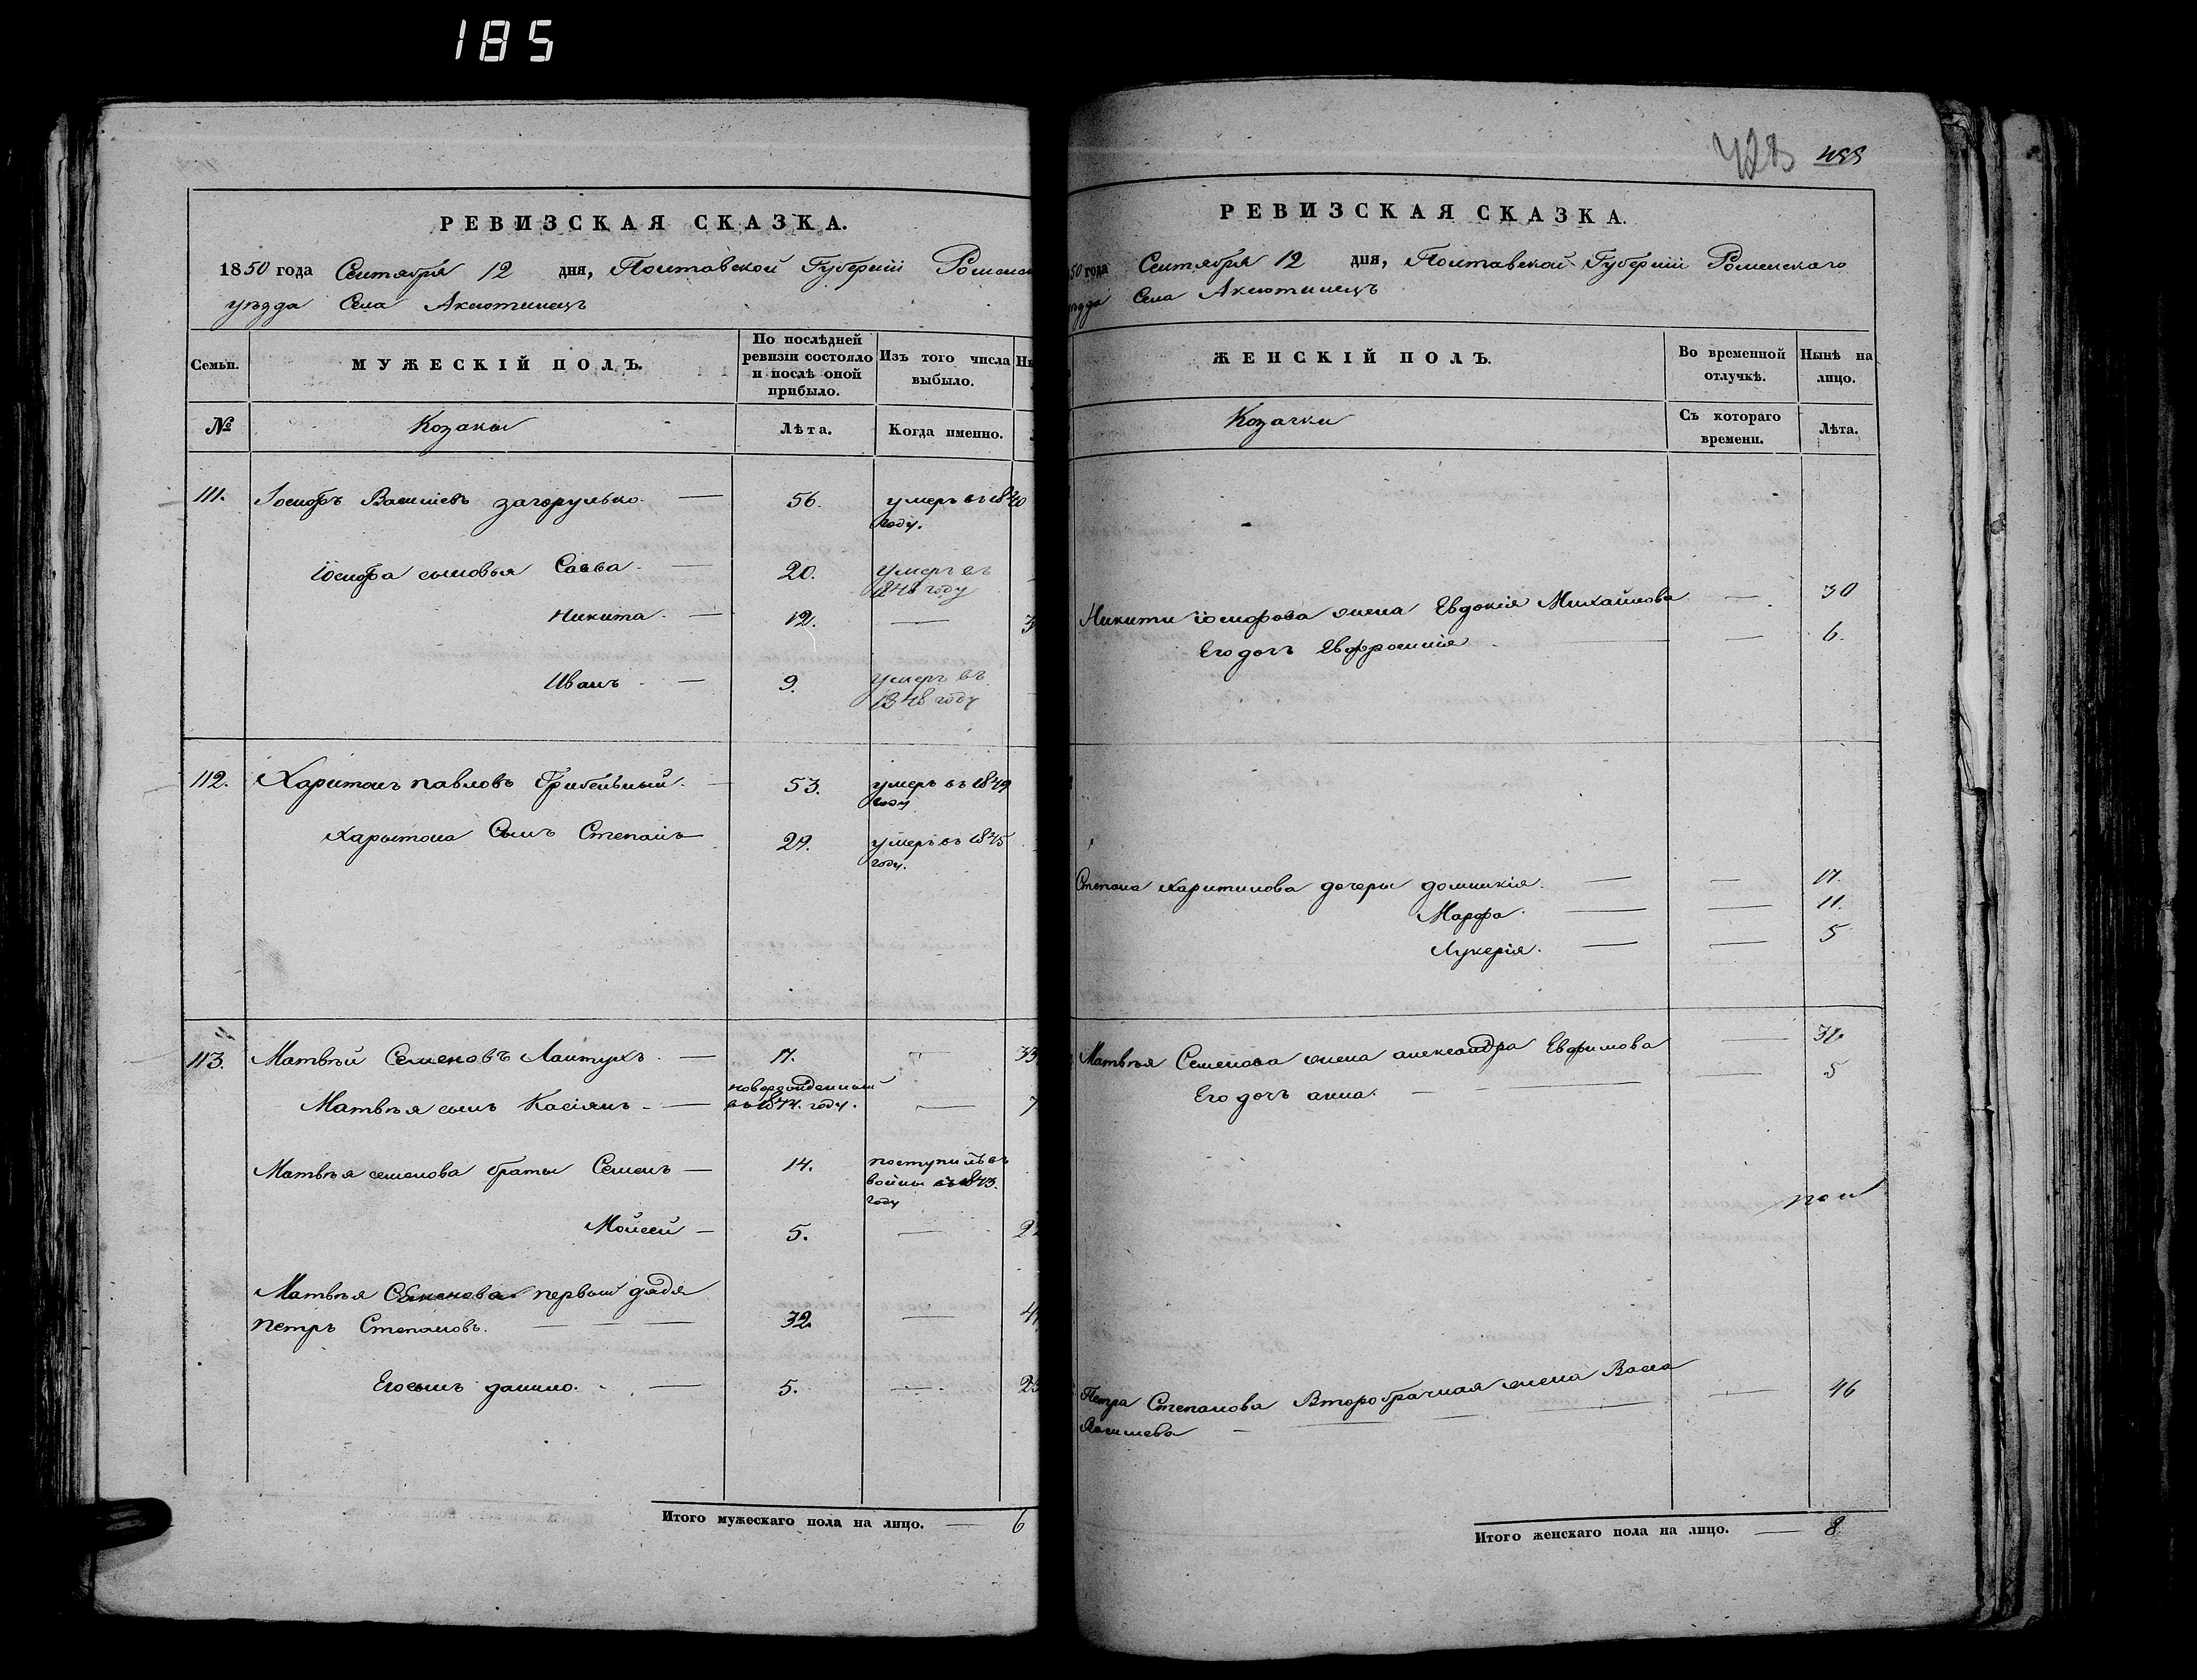 185
РЕВИЗСКАЯ СКАЗКА.
1850 года Сентября 12 дня, Полтавской Губерніи Роменск
уѣзда Села Аксютинецъ
Семьи. МУЖЕСКІЙ ПОЛЪ. По послѣдней ревизіи состояло и послѣ оной прибыло. Изъ того числа выбыло.
№ Козаки Лѣта. Когда именно.
111. Іосифъ Васильевъ загорулько 56. умеръ въ 1840
году.
Іосифа сыновья Савва 20. умеръ въ
1848 году
Никита 12. — 3
Иванъ 9. умеръ въ
1848 году
112. Харитонъ павловъ Грибельный 53. умеръ въ 1849
году
Харытона Сынъ Степанъ 29. умеръ въ 1845
году.
113. Матвѣй Семеновъ Лантухъ 17. — 33
Матвѣя сынъ Касіянъ новорожденный
въ 1844. году. — 7
Матвѣя семенова браты Семенъ 14. поступилъ въ
войны въ 1843.
году
Мойсей 5. — 2
Матвѣя Семенова первый дядя
петръ Степановъ. 32. — 4
Его сынъ данило 5. — 2
Итого мужескаго пола на лицо. — 6
428 488
РЕВИЗСКАЯ СКАЗКА.
50 года Сентября 12 дня, Полтавской Губерніи Роменскаго
уѣзда Села Аксютинецъ
ЖЕНСКІЙ ПОЛЪ. Во временной отлучкѣ. Нынѣ на лицо.
Козачки Съ котораго времени. Лѣта.
Никиты іосифова жена Евдокія Михайлова — 30
Его дочь Евфросинія — 6.
Степана харитинова дочеры домникія — 17.
Марфа — 11.
Лукерія — 5
Матвѣя Семенова жена александра Евфимова — 32
Его дочь анна — 5
Петра Степанова Второбрачная жена Васса — 46
Васильева
Итого женскаго пола на лицо. — 8